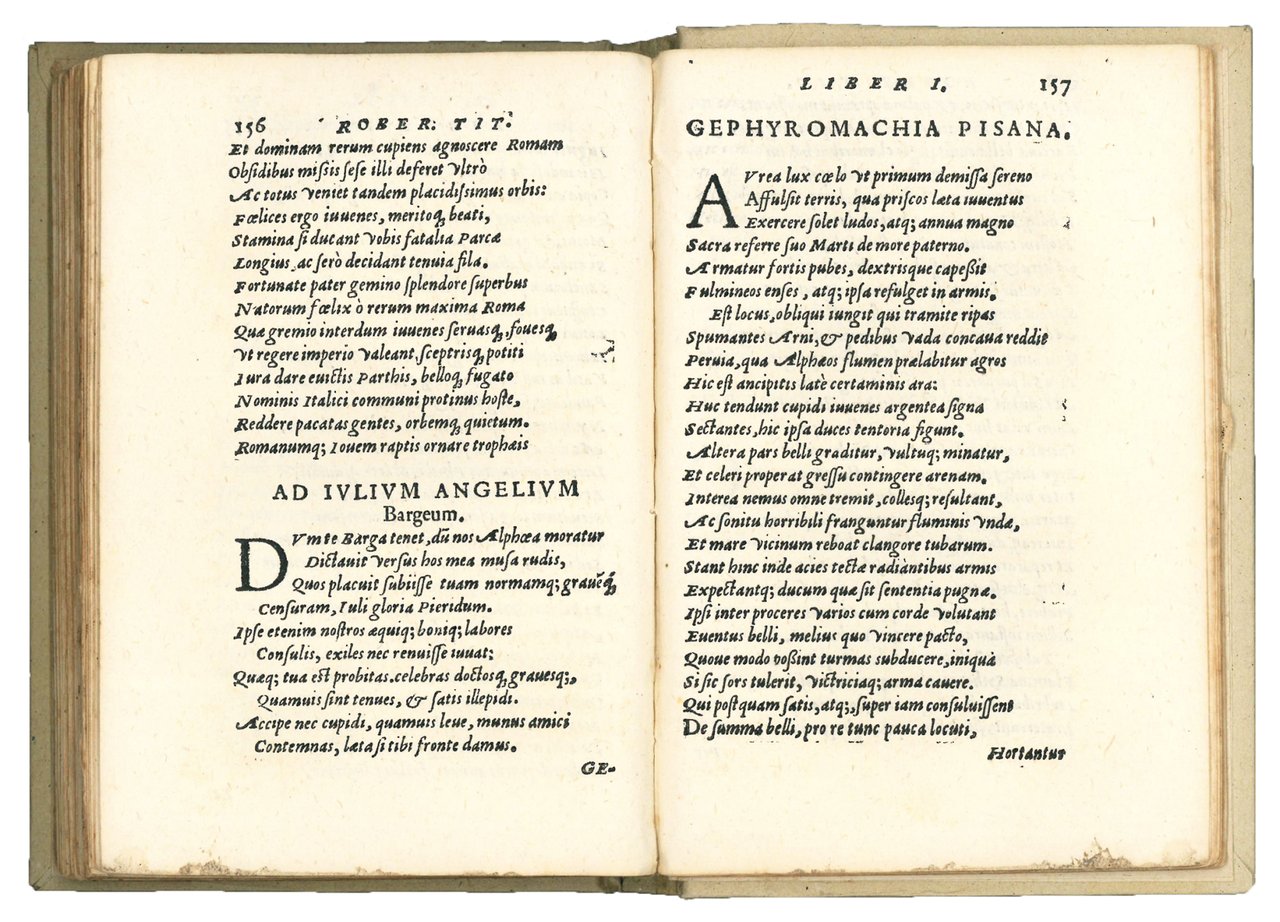 156 ROBER: TIT.
Et dominam rerum cupiens agnoscere Romam
Obsidibus missis sese illi deferet vltrò
Ac totus veniet tandem placidissimus orbis:
Fœlices ergo iuuenes, meritoq; beati,
Stamina si ducant vobis fatalia Parcæ
Longius, ac serò decidant tenuia fila.
Fortunate pater gemino splendore superbus
Natorum fœlix ò rerum maxima Roma
Quæ gremio interdum iuuenes seruasq; fouesq;
Vt regere imperio valeant, sceptrisq; potiti
Iura dare euictis Parthis, belloq; fugato
Nominis Italici communi protinus hoste,
Reddere pacatas gentes, orbemq; quietum.
Romanumq; Iouem raptis ornare trophæis
AD IVLIVM ANGELIVM
Bargeum.
DVm te Barga tenet, dũ nos Alphœa moratur
Dictauit versus hos mea musa rudis,
Quos placuit subiisse tuam normamq; grauẽq;
Censuram, Iuli gloria Pieridum.
Ipse etenim nostros æquiq; boniq; labores
Consulis, exiles nec renuisse iuuat:
Quæq; tua est probitas, celebras doctosq; grauesq;,
Quamuis sint tenues, & satis illepidi.
Accipe nec cupidi, quamuis leue, munus amici
Contemnas, læta si tibi fronte damus.
GE-
LIBER I. 157
GEPHYROMACHIA PISANA.
AVrea lux cœlo vt primum demissa sereno
Affulsit terris, qua priscos læta iuuentus
Exercere solet ludos, atq; annua magno
Sacra referre suo Marti de more paterno.
Armatur fortis pubes, dextrisque capessit
Fulmineos enses, atq; ipsa refulget in armis.
Est locus, obliqui iungit qui tramite ripas
Spumantes Arni, & pedibus vada concaua reddit
Peruia, qua Alphæos flumen prælabitur agros
Hic est ancipitis latè certaminis ara:
Huc tendunt cupidi iuuenes argentea signa
Sectantes, hic ipsa duces tentoria figunt.
Altera pars belli graditur, vultuq; minatur,
Et celeri properat gressu contingere arenam.
Interea nemus omne tremit, collesq; resultant,
Ac sonitu horribili franguntur fluminis vndæ,
Et mare vicinum reboat clangore tubarum.
Stant hinc inde acies tectæ radiantibus armis
Expectantq; ducum quæ sit sententia pugnæ.
Ipsi inter proceres varios cum corde volutant
Euentus belli, melius quo vincere pacto,
Quoue modo possint turmas subducere, iniquà
Si sic sors tulerit, victriciaq; arma cauere.
Qui postquam satis, atq;, super iam consuluissent
De summa belli, pro re tunc pauca locuti,
Hortantur